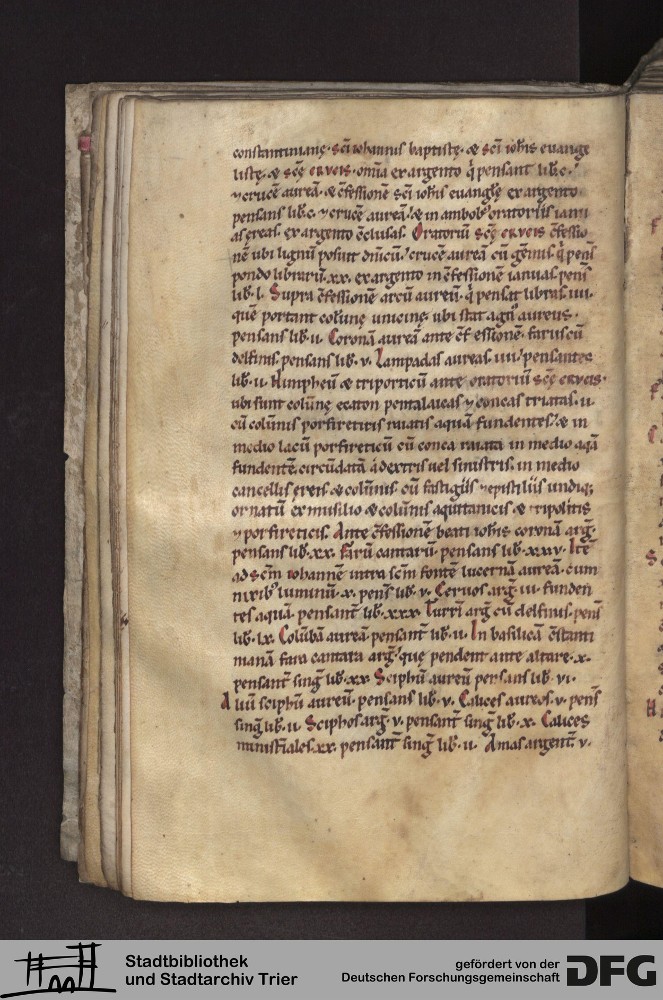 constantinianę. sc̄i iohannis baptistę. & sc̄i ioh̄is evange
listę. & sc̄ę crvcis. om̄ia ex argento q̨ pensant lib. c.
⁊ crucē aureā. & c̄fessionē sc̄i ioh̄is euanglię ex argento
pensans lib. c. ⁊ crucē aureā. & in ambob; oratoriis ianu
as ęreas. ex argento c̄clusas. Oratoriū sc̄ę crvcis c̄fessio
nē ubi lignū posuit dn̄icū. crucē aureā cū gēmis. q̨ pens̄
pondo librarū. xx. ex argento in c̄fessionē ianuas pens̄
lib. l. Supra c̄fessionē arcū aureū. q̨ pensat libras. iiii.
quē portant colūnę unicinę. ubi stat agn' aureus.
pensans lib. ii. Coronā aureā ante c̄fessionē. farus cū
delfinis. pensans lib. v. Lampadas aureas. iiii. pensantes
lib. ii. Nimpheū & triporticū ante oratoriū sc̄ę crvcis.
ubi sunt colūnę ecaton pentalaicas ⁊ concas triatas. ii.
cū colūnis porfiretitis raiatis aquā fundentes. & in
medio lacū porfireticū cū conca raiata in medio aq̄ā
fundentē. circūdatā a dextris uel sinistris. in medio
cancellis ęreis & colūnis. cū fastigiis ⁊ epistiliis undiq;
ornatū ex musiuo & colūnis aquitanicis & tripolitis
⁊ porfireticis. Ante c̄fessionē beati ioh̄is coronā arḡ.
pensans lib. xx. Farū cantarū. pensans lib. xxxv. Itē
ad sc̄m iohannē intra sc̄m fontē lucernā aureā. cum
nixib; luminū. x. pens̄ lib. v. Ceruos arḡ. iii. funden
tes aquā. pensant̄ lib. xxx. Turrī arḡ cū delfinis. pens̄
lib. lx. Colūbā aureā pensant̄ lib. ii. In basilicā c̄stanti
nianā fara cantara arḡ. quę pendent ante altare. x.
pensant̄ sinḡ lib. xx. Sciphū aureū pensans lib. vi.
Aliū sciphū aureū. pensans lib. v. Calices aureos. v. pens̄
sinḡ lib. ii. Sciphos arḡ. v. pensant̄ sinḡ lib. x. Calices
minist̄iales. xx. pensant̄ sinḡ lib. ii. Amas argent̄. v.
Stadtbibliothek
und Stadtarchiv Trier
gefördert von der
Deutschen Forschungsgemeinschaft
DFG